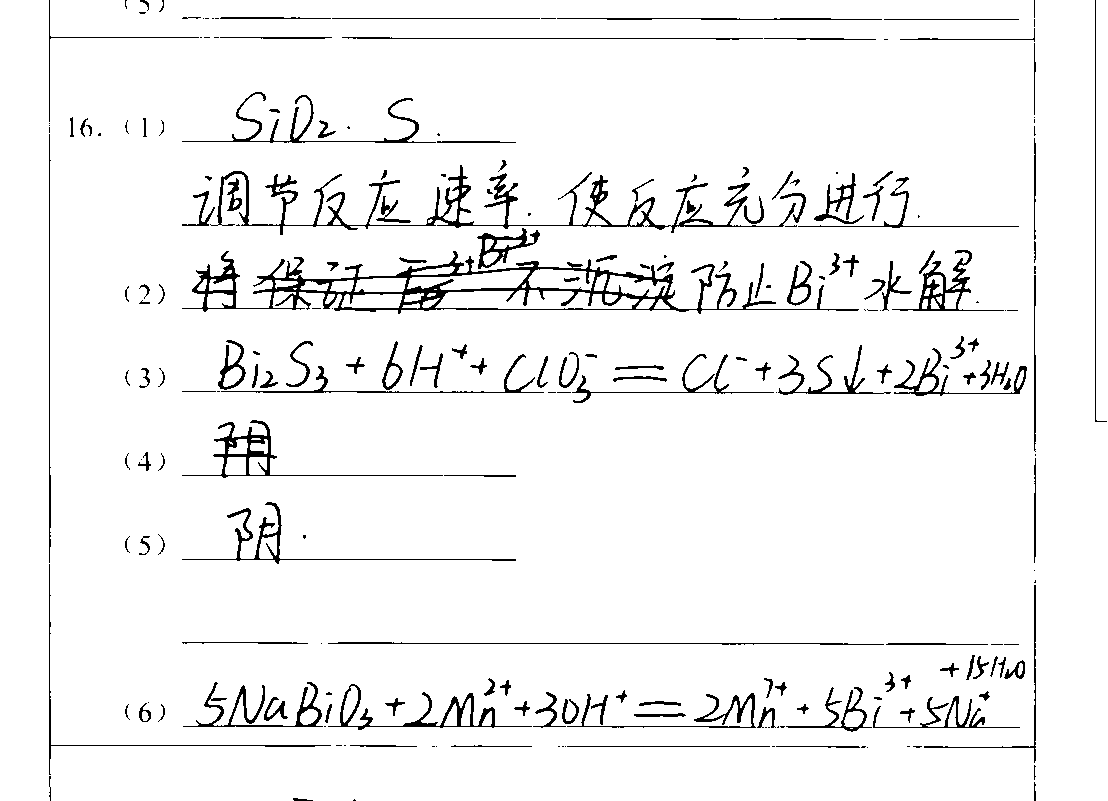 (5)
16. (1) SiO₂. S.
调节反应速率. 使反应充分进行.
(2) 防止Bi³⁺水解.
(3) Bi₂S₃ + 6H⁺ + ClO₃⁻ == Cl⁻ + 3S↓ + 2Bi³⁺ + 3H₂O
(4) 阴
(5) 阴.
(6) 5NaBiO₃ + 2Mn²⁺ + 30H⁺ == 2Mn⁷⁺ + 5Bi³⁺ + 5Na⁺ + 15H₂O